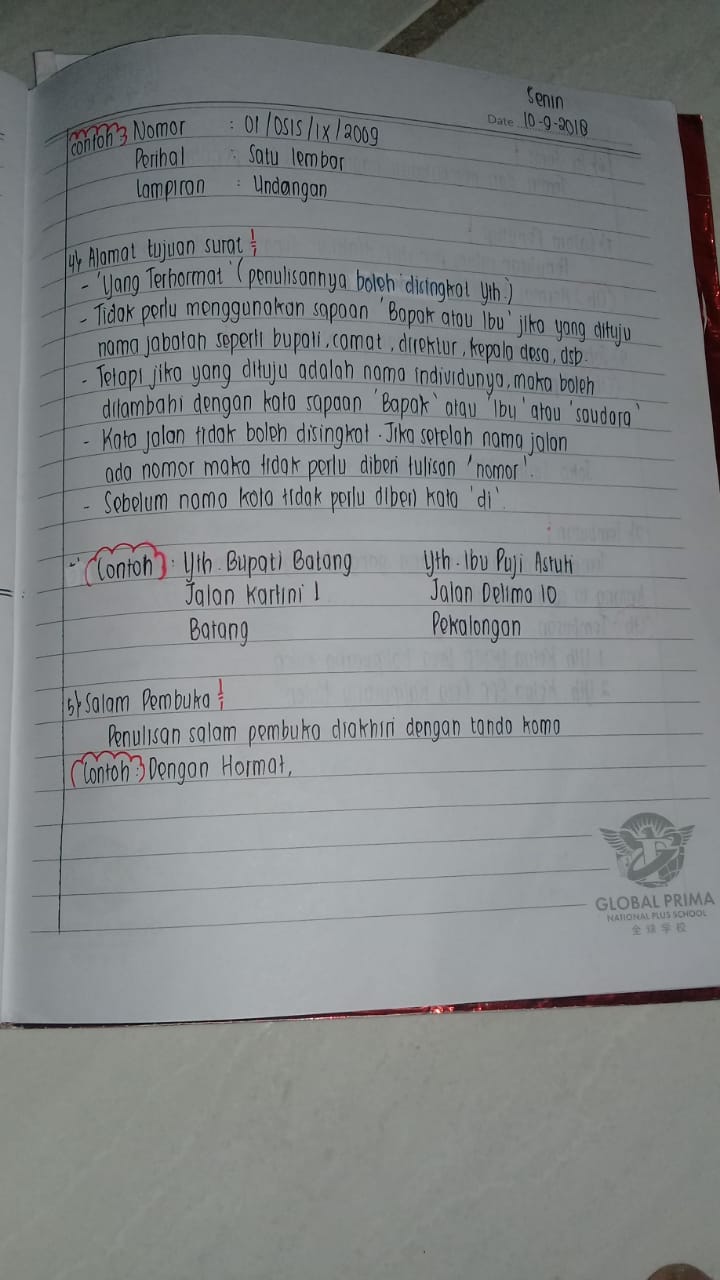 Senin
Date 10-9-2018
Contoh Nomor : 01/OSIS/IX/2009
Perihal : Satu lembar
Lampiran : Undangan
4) Alamat tujuan surat :
- 'Yang Terhormat' (penulisannya boleh disingkat Yth.)
- Tidak perlu menggunakan sapaan 'Bapak atau Ibu' jika yang dituju
nama jabatan seperti bupati, camat, direktur, kepala desa, dsb.
- Tetapi jika yang dituju adalah nama individunya, maka boleh
ditambahi dengan kata sapaan 'Bapak' atau 'Ibu' atau 'saudara'
- Kata jalan tidak boleh disingkat. Jika setelah nama jalan
ada nomor maka tidak perlu diberi tulisan 'nomor'.
- Sebelum nama kota tidak perlu diberi kata 'di'.
- Contoh : Yth. Bupati Batang Yth. Ibu Puji Astuti
Jalan Kartini 1 Jalan Delima 10
Batang Pekalongan
5) Salam Pembuka :
Penulisan salam pembuka diakhiri dengan tanda koma
Contoh : Dengan Hormat,
GLOBAL PRIMA
NATIONAL PLUS SCHOOL
全球学校